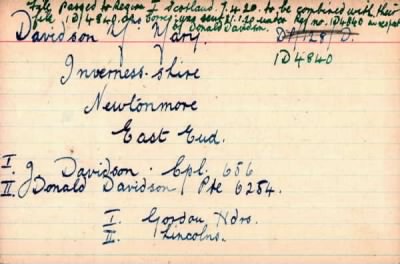 file passed to Region I Scotland. 7.4.20. to be combined with their
file 1D/4840. was sent 21.1.20 under Reg no. 1D4840 in respect
of Donald Davidson.
Davidson M Mary. D/11281/D.
1D4840
Inverness-shire
Newtonmore
East End.
I. J. Davidson. Cpl. 656
II. Donald Davidson, Pte 6254.
I. Gordon Hdrs.
II. Lincolns.